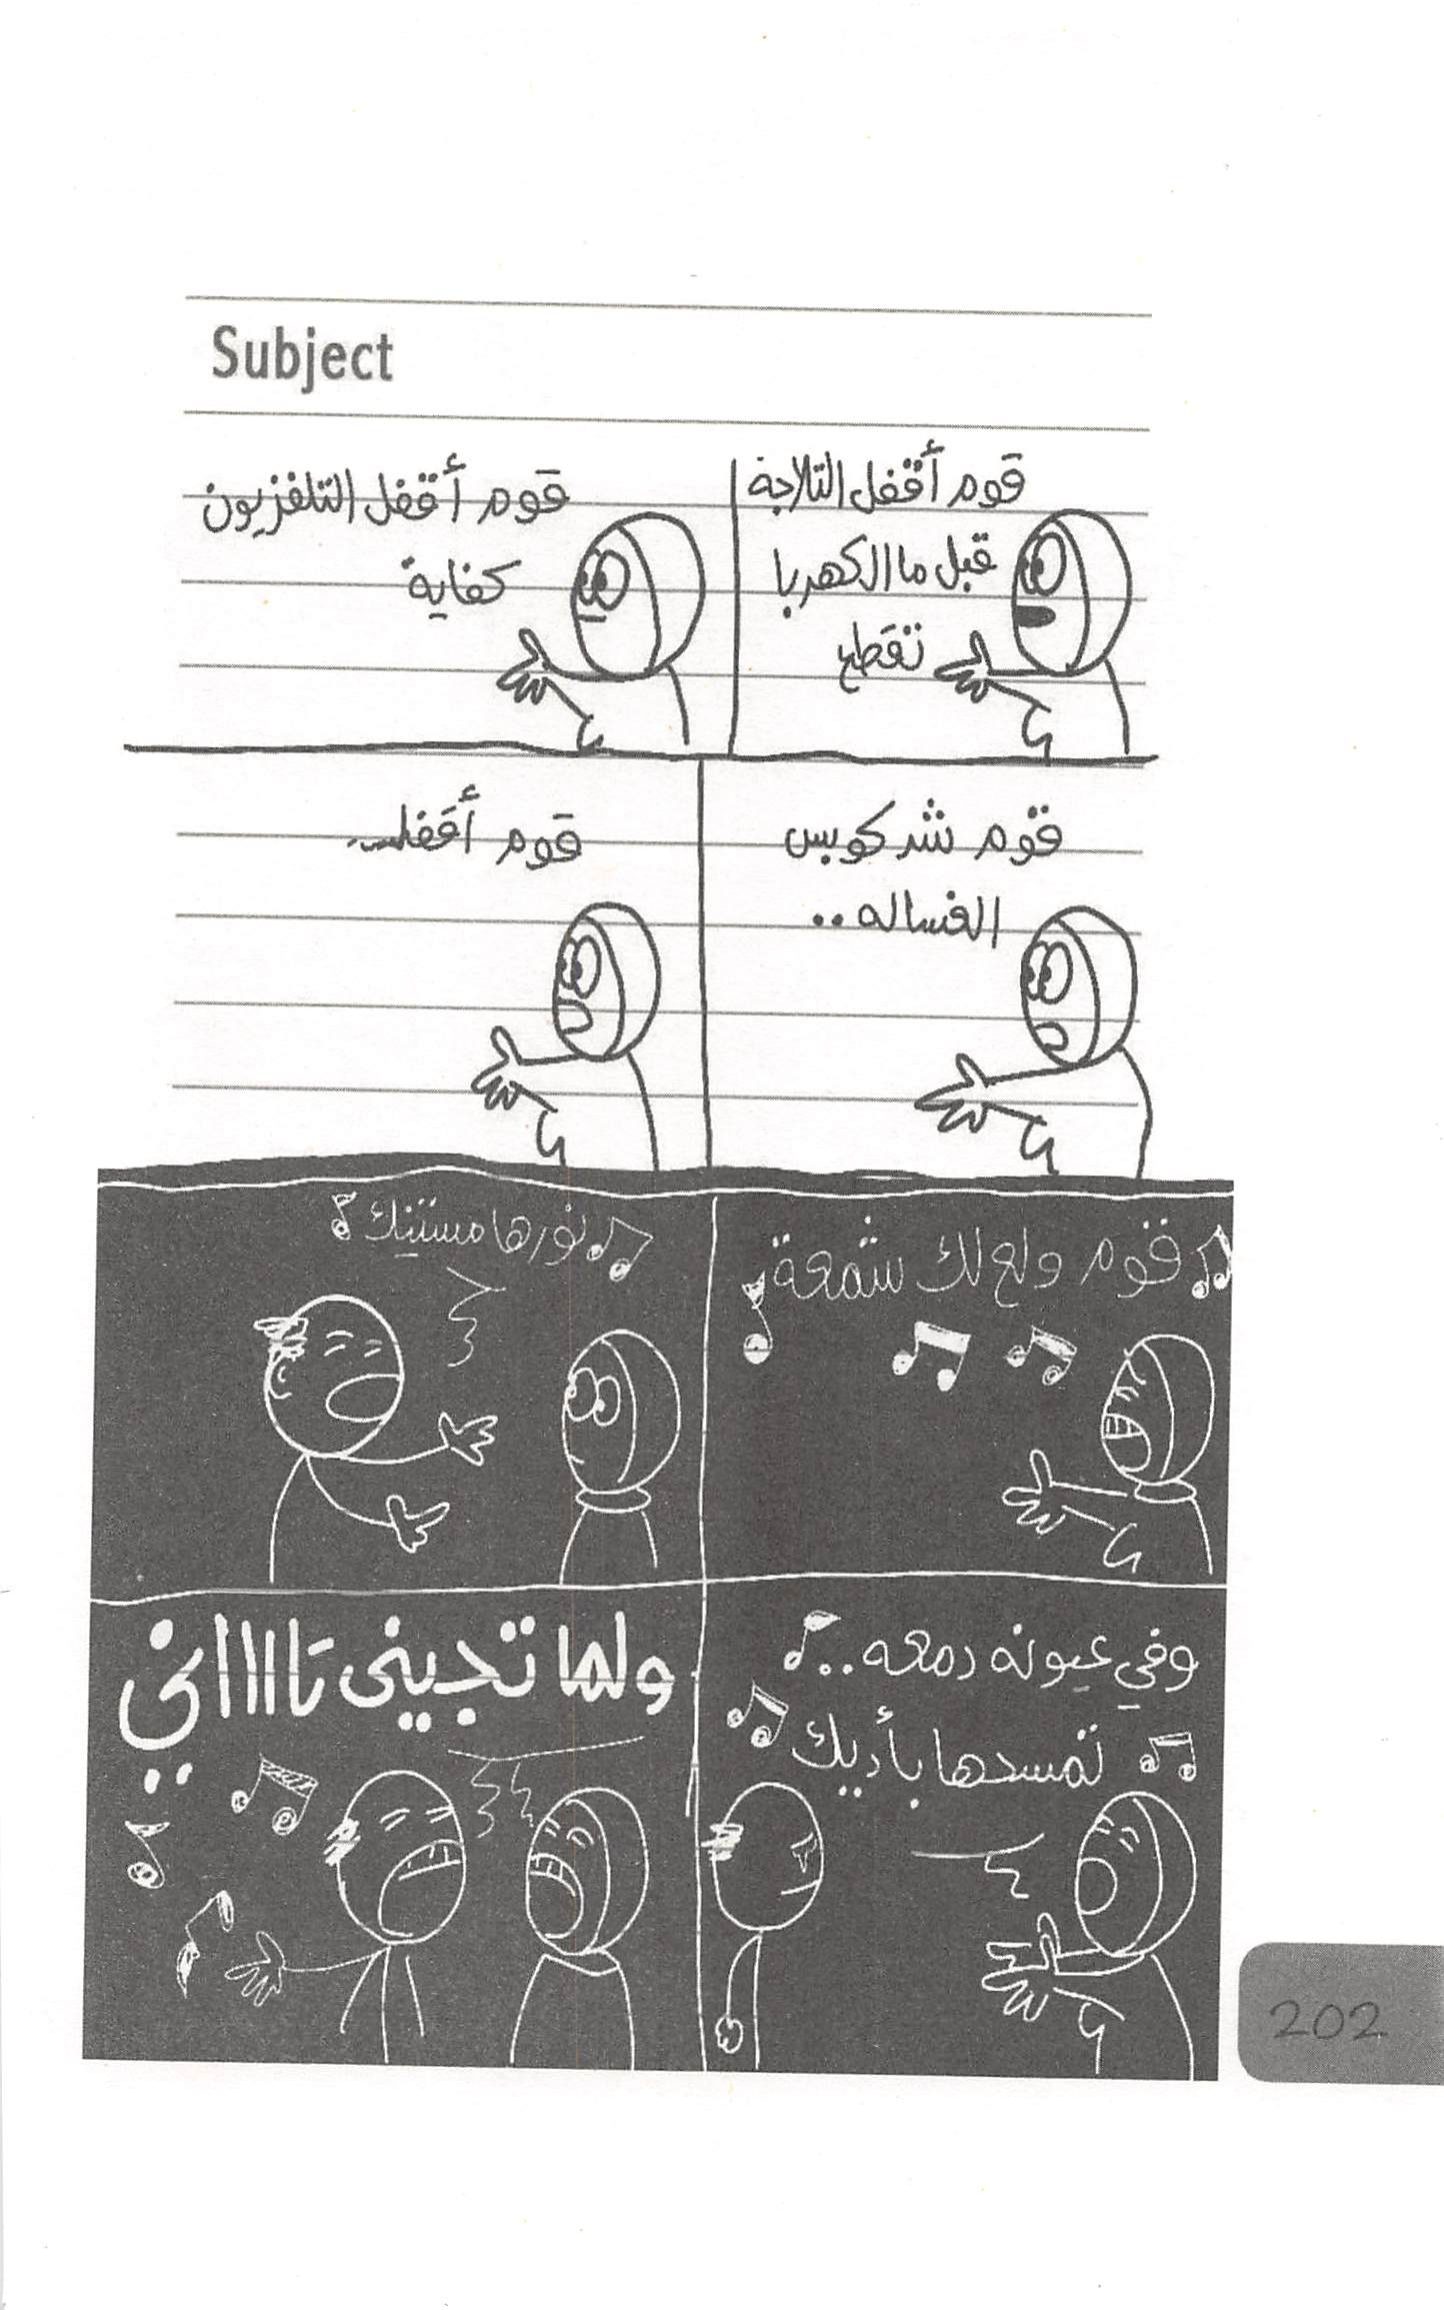 Subject
قوم أقفل التلاجة
قبل ما الكهربا
تقطع
قوم أقفل التلفزيون
كفاية
قوم شد كوبس
الغساله ..
قوم أقفل
قوم ولع لك شمعة
نورها مستنيك
وفي عيونه دمعه ..
تمسدها بأديك
ولما تجيني تاااااني
202